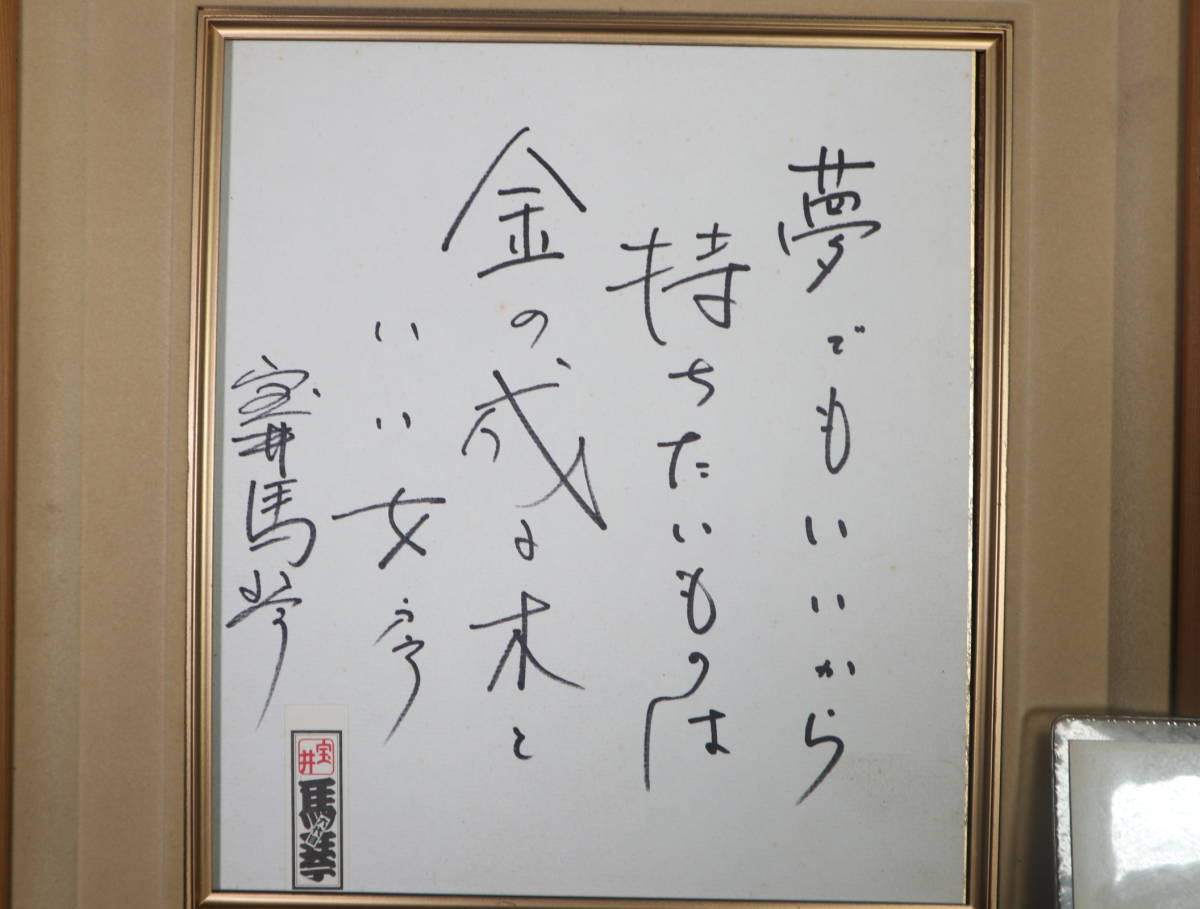 夢でもいいから
持ちたいものは
金の成る木と
いい女房
宝井馬琴
宝井
馬琴